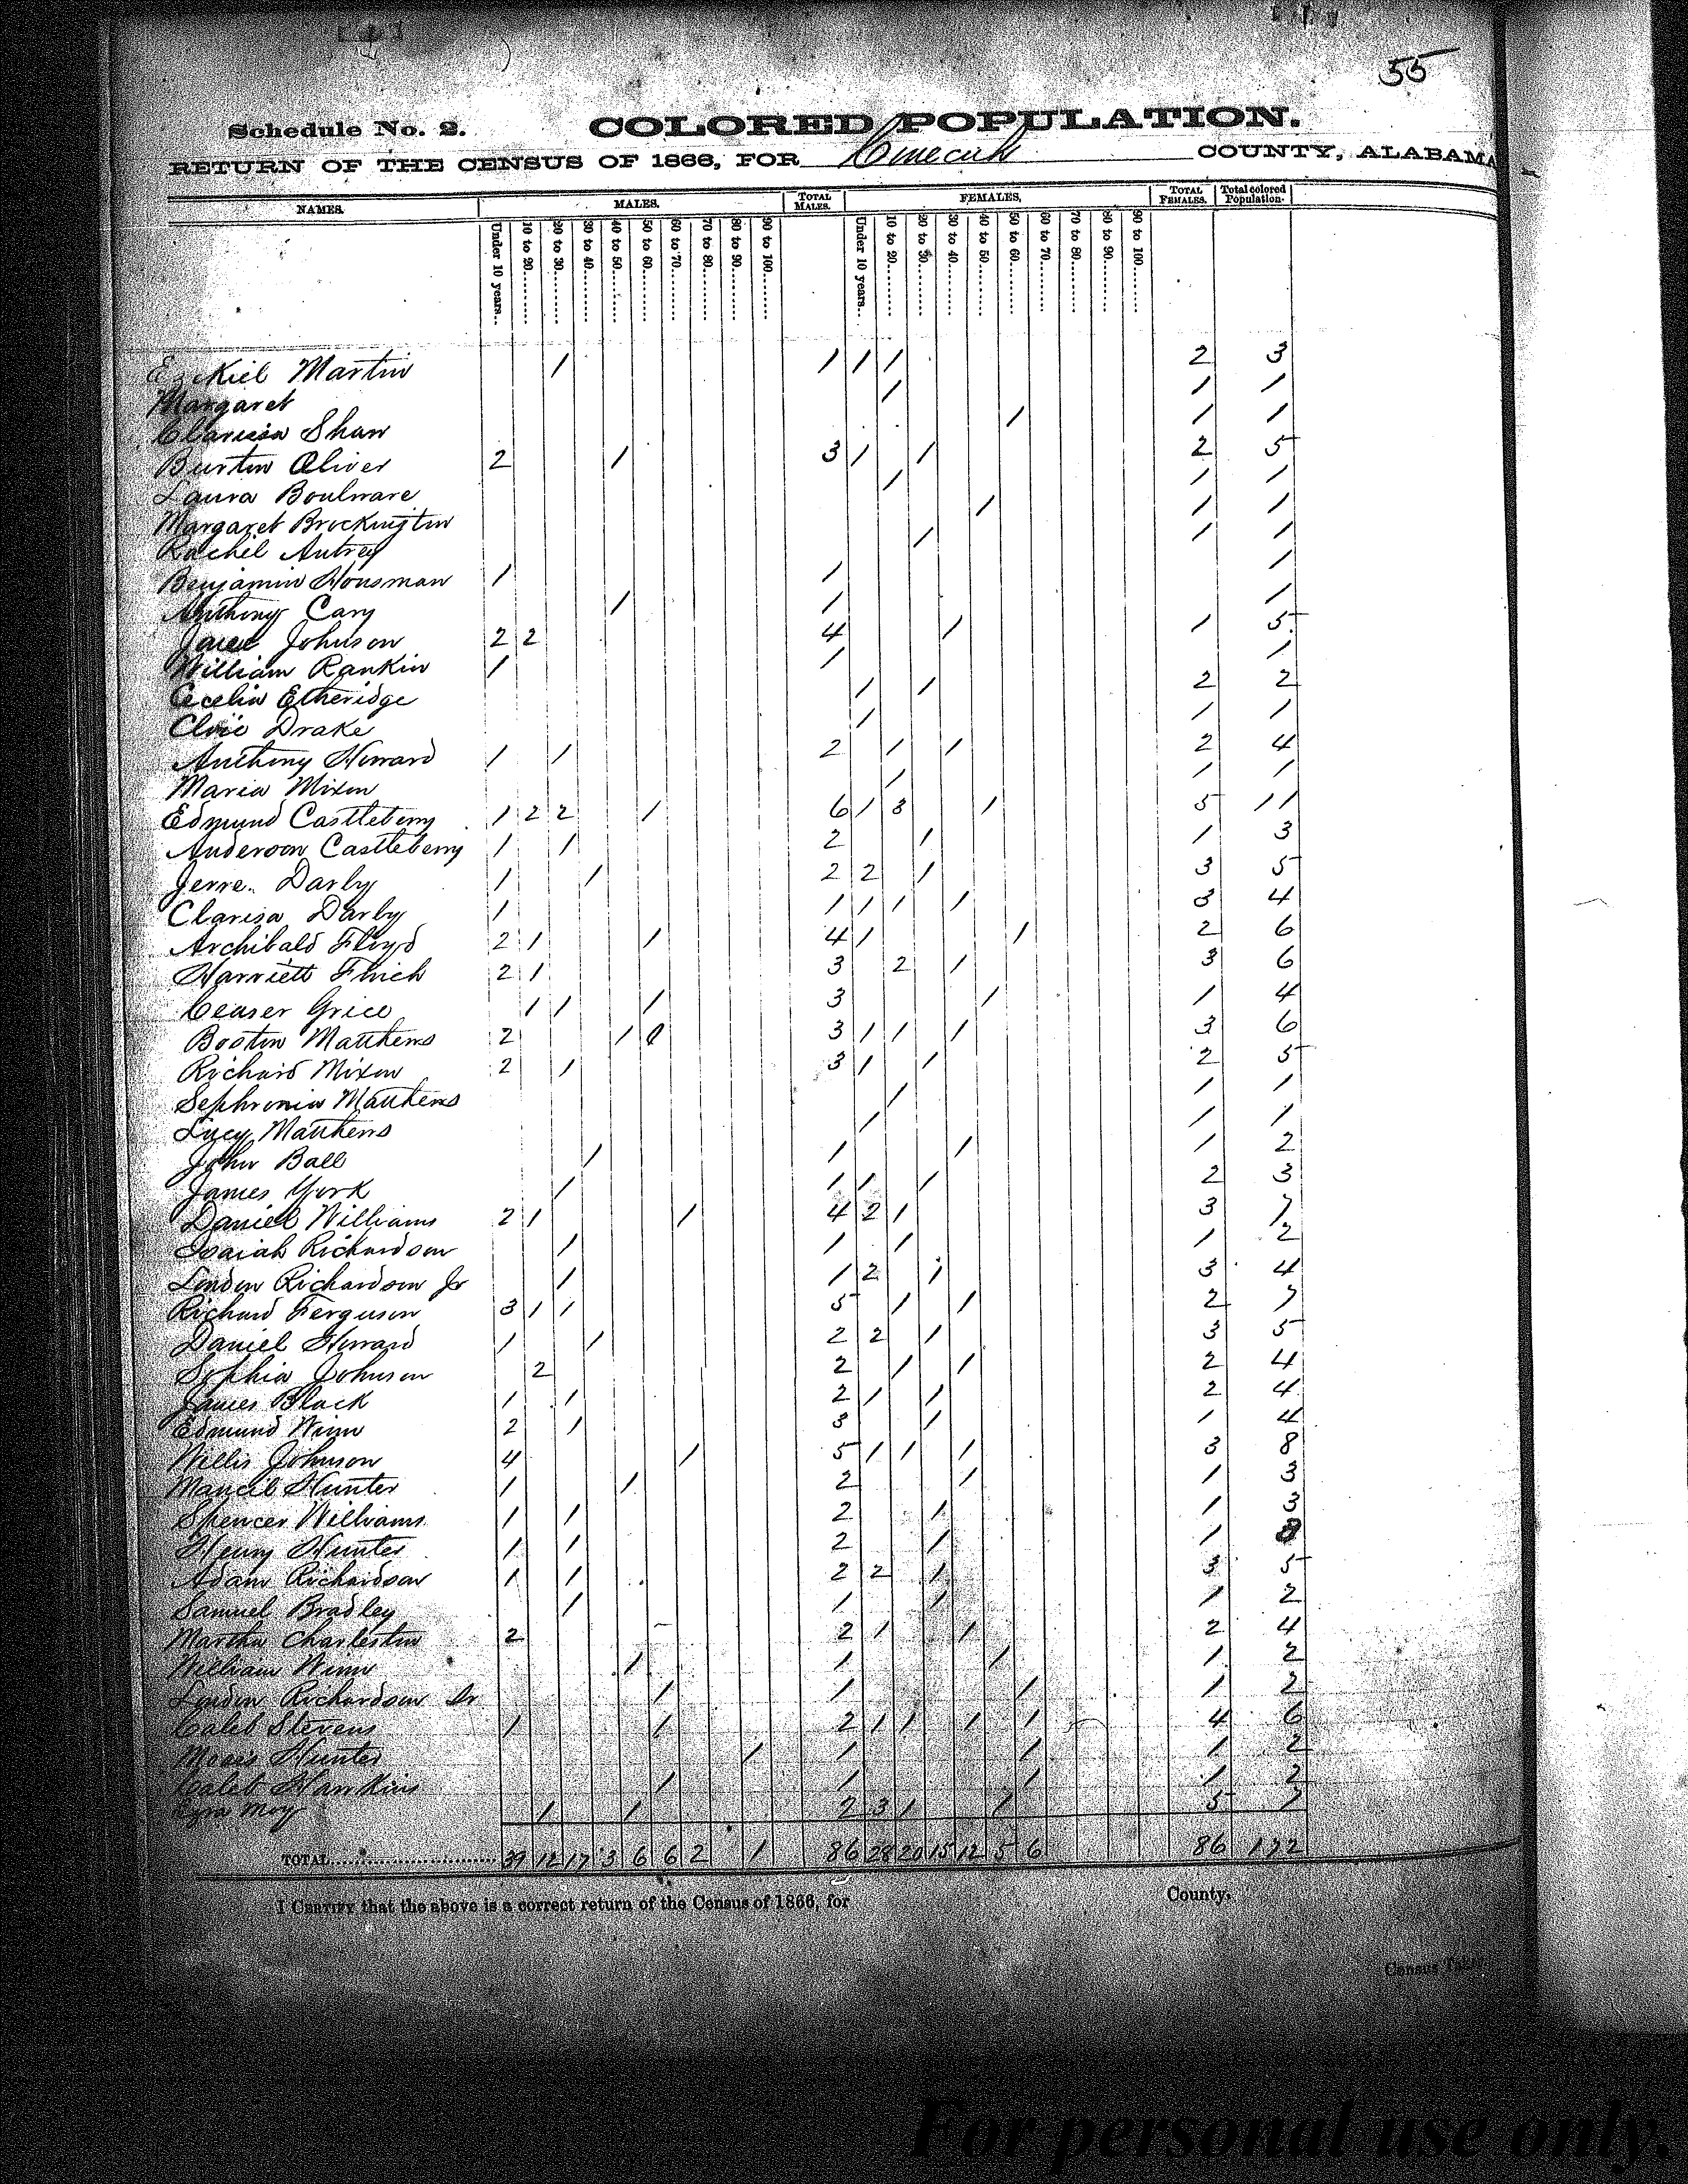 55
Schedule No. 2. COLORED POPULATION.
RETURN OF THE CENSUS OF 1866, FOR Conecuh COUNTY, ALABAMA
NAMES. MALES. TOTAL MALES. FEMALES. TOTAL FEMALES. Total colored Population.
Under 10 years... 10 to 20 20 to 30 30 to 40 40 to 50 50 to 60 60 to 70 70 to 80 80 to 90 90 to 100 Under 10 years... 10 to 20 20 to 30 30 to 40 40 to 50 50 to 60 60 to 70 70 to 80 80 to 90 90 to 100
Ezekiel Martin 1 1 1 1 2 3
Margaret 1 1 1
Clarissa Shaw 1 1 1
Burton Oliver 2 1 3 1 1 2 5
Laura Boulware 1 1 1
Margaret Brockington 1 1 1
Rachel Autrey 1 1 1
Benjamin Housman 1 1 1
Anthony Cary 1 1 1
Johnson 2 2 4 1 1 5
William Rankin 1 1 1
Cecelia Etheridge 1 1 2 2
Drake 1 1 1
Anthony Howard 1 1 2 1 1 2 4
Maria Mixon 1 1 1
Edmund Castleberry 1 2 2 1 6 1 3 1 5 11
Anderson Castleberry 1 1 2 1 1 3
Jerre Darby 1 1 2 2 1 3 5
Clarisa Darby 1 1 1 1 1 3 4
Archibald Floyd 2 1 1 4 1 1 2 6
Harriett Flrich 2 1 3 2 1 3 6
Ceaser Grice 1 1 1 3 1 1 4
Boston Matthews 2 1 3 1 1 1 3 6
Richard Mixon 2 1 3 1 1 2 5
Sephronia Matthews 1 1 1
Lucy Matthews 1 1 1
John Ball 1 1 1 1 2
James York 1 1 1 1 2 3
Daniel Williams 2 1 1 4 2 1 3 7
Isaiah Richardson 1 1 1 1 2
Lindon Richardson Jr 1 1 2 1 3 4
Richard Ferguson 3 1 1 5 1 1 2 7
Daniel Howard 1 1 2 2 1 3 5
Sophia Johnson 2 2 1 1 2 4
James Black 1 1 2 1 1 2 4
Edmund Winn 2 1 3 1 1 4
Willis Johnson 4 1 5 1 1 1 3 8
Mancil Hunter 1 1 2 1 1 3
Spencer Williams 1 1 2 1 1 3
Henry Hunter 1 1 2 1 1 3
Adam Richardson 1 1 2 2 1 3 5
Samuel Bradley 1 1 1 1 2
Martha Charleston 2 2 1 1 2 4
William Winn 1 1 1 1 2
Lindon Richardson Sr 1 1 1 1 2
Caleb Stevens 1 1 2 1 1 1 1 4 6
Moses Hunter 1 1 1 1 2
Caleb Hawkins 1 1 1 1 2
Ezra Moy 1 1 2 3 1 1 5 7
TOTAL 39 12 17 3 6 6 2 1 86 28 20 15 12 5 6 86 172
I CERTIFY that the above is a correct return of the Census of 1866, for County.
Census Taker
For personal use only.